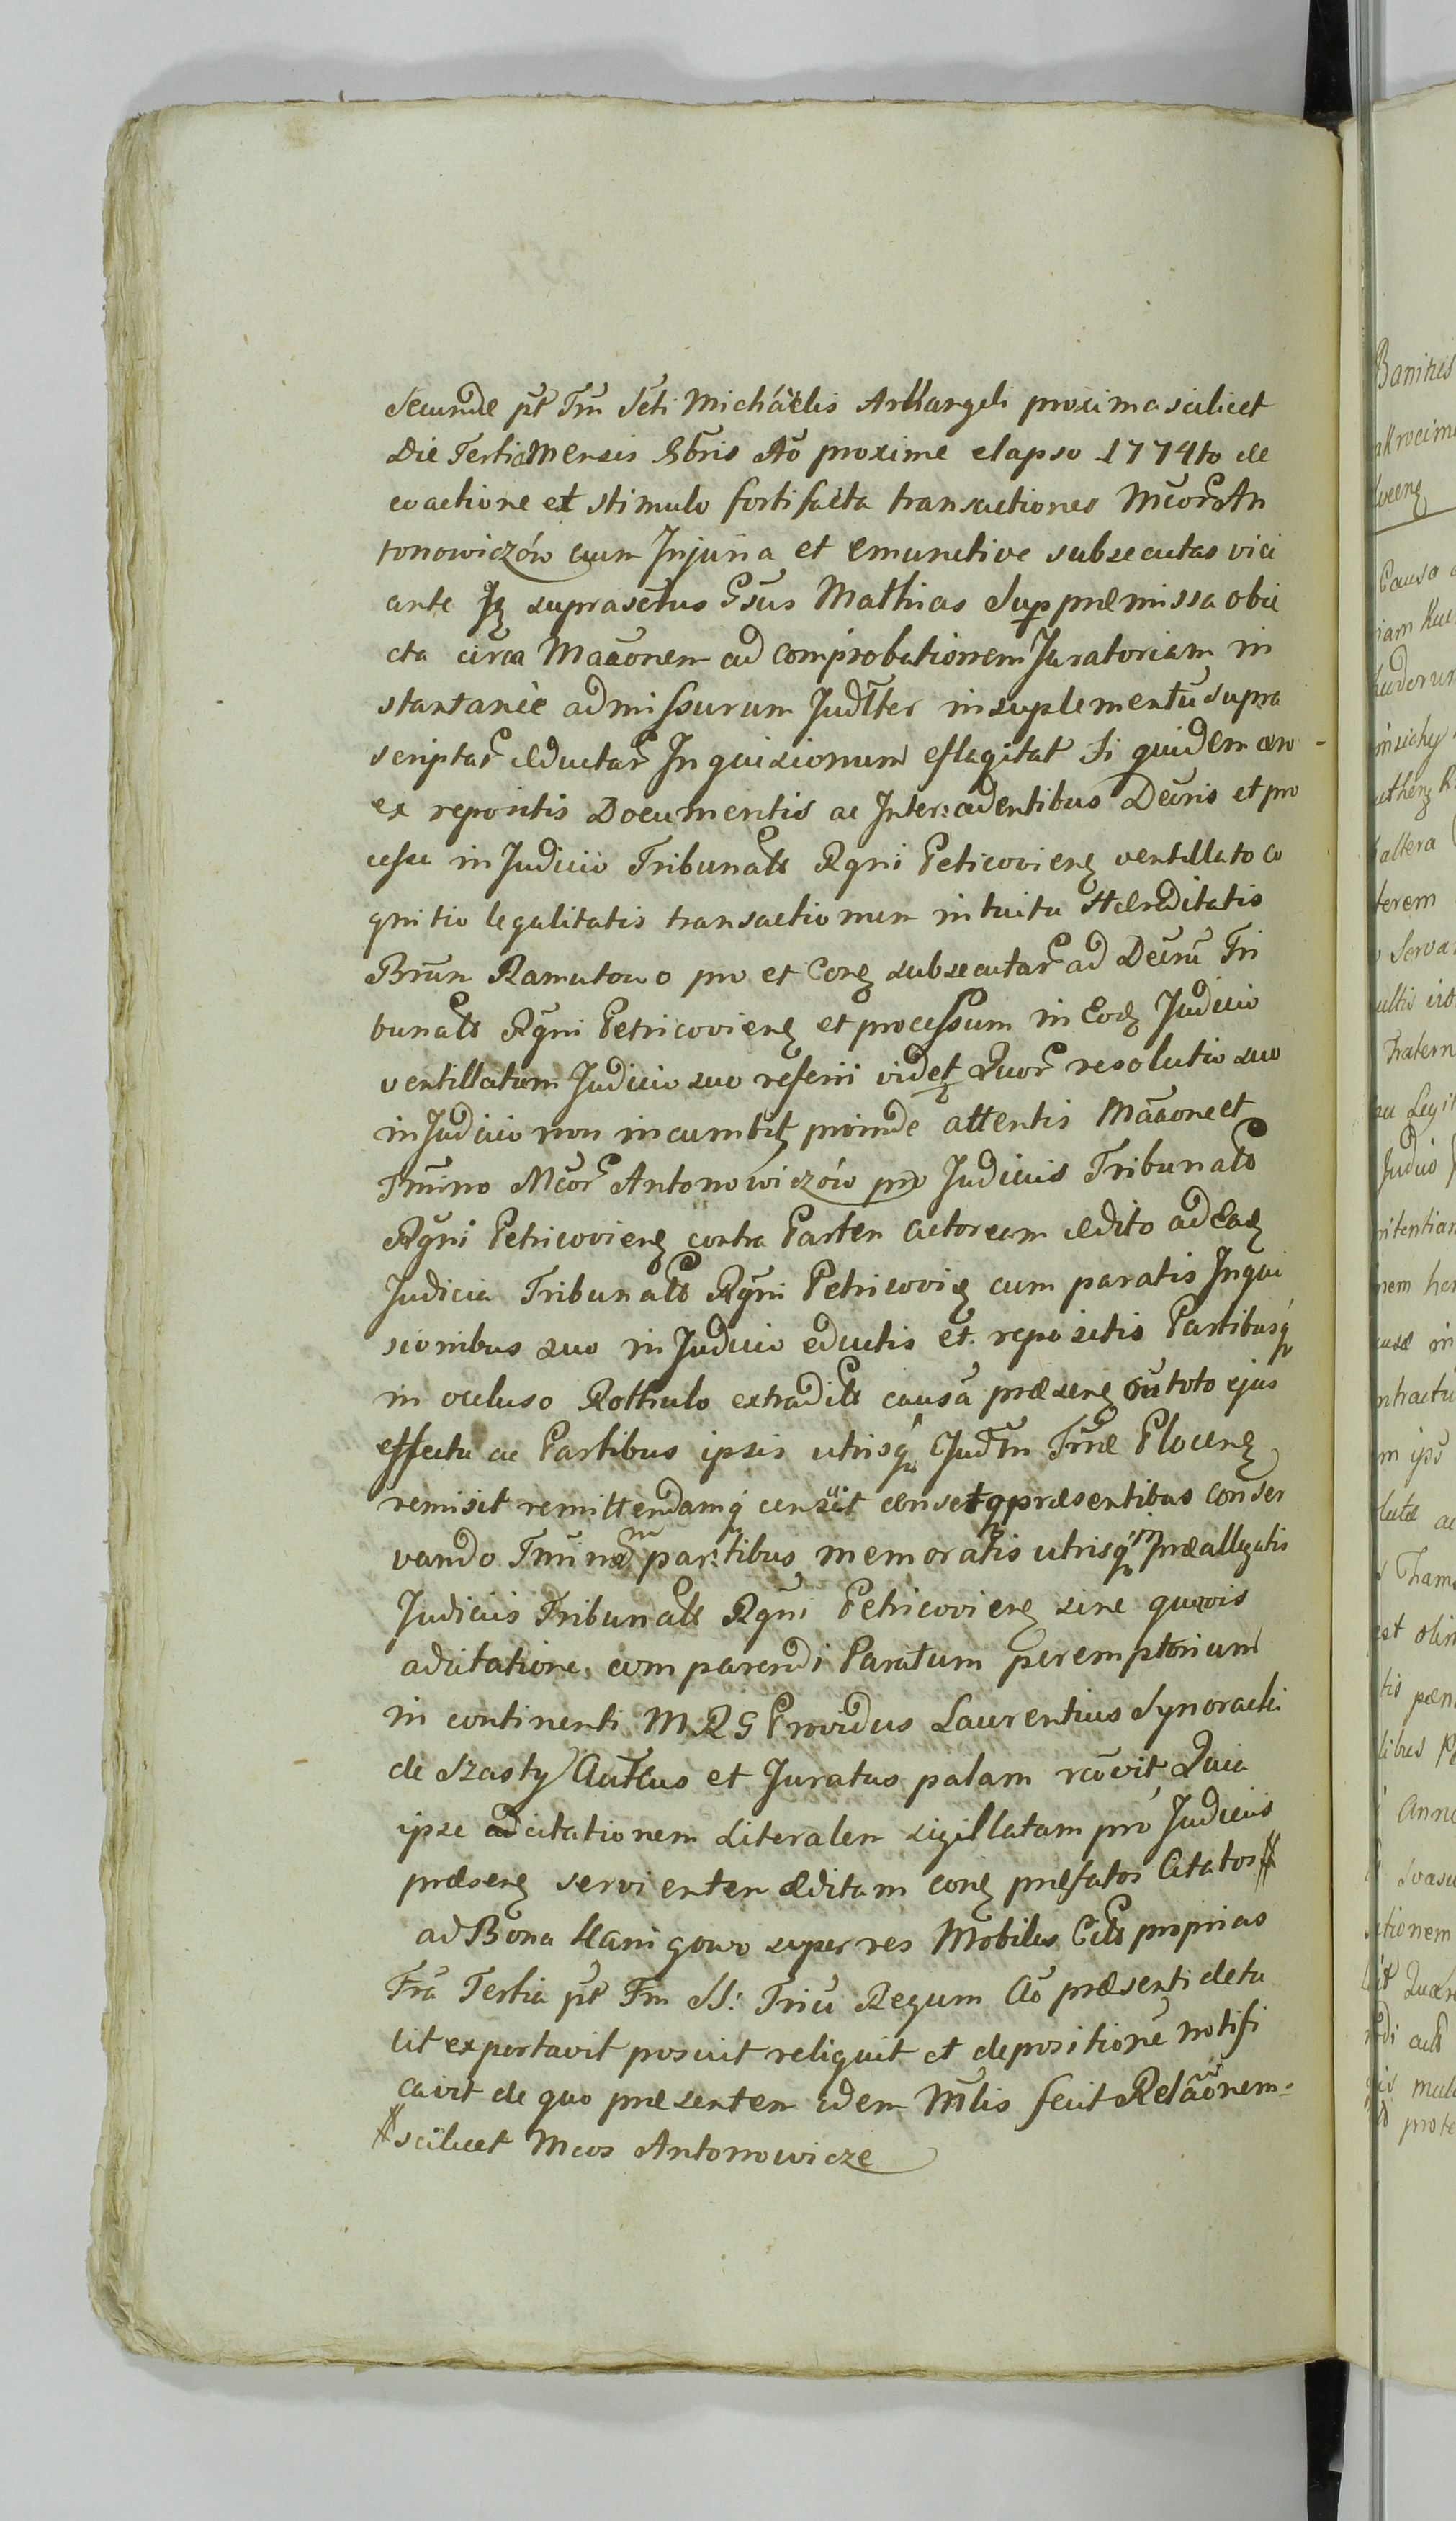 Secundae pt Fm Scti Michäelis Arkangeli proxima scilicet
Die Tertia Mensis 8bris Ao proxime elapso 1774to de
coactione et stimulo forti facta transactiones Mcor An
tonowiczów cum Injuria et emunctive subsecutas vici
ante Iz suprasctus Gsus Mathias Sup praemissa obie
cta circa Maaonem ad comprobationem Juratoriam in
stantanee admissurum Judlter in suplementu supra
scriptar eductar Inquisionum eflagitat Si quidem aen
ex repositis Documentis ac Inter: cadentibus Decris et pro
cessu in Judicio Tribunals Rgni Peticoviens ventillato co
gnitio legalitatis transactionum intuitu Haereditatis
Brun Ramutowo pro et Conz subsecutar ad Decru Tri
bunals Rgni Petricoviens et processum in Eod Judicio
ventillatum Judicio suo referri videt Quor resolutio suo
in Judicio non incumbit proinde attentis Maaone et
Tmino Mcor Antonowiczów pro Judiciis Tribunals
Rgni Petricoviens contra Partem actoream edito ad Ead
Judicia Tribunals Rgni Petricovi cum paratis Inqui
sionibus suo in Judicio eductis et repositis Partibusq
in occluso Rothulo extradits causa praesens cu toto ejus
effectu ac Partibus ipsis utrisq Judm Trrae Plocens
remisit remittendamq censüit censetq praesentibus conser
vando Tminu partibus memoratis utrisq in praeallegatis
Judiciis Tribunals Rgni Petricoviens sine quavis
adcitatione, comparendi Paratum peremptorium
in continenti M R G Providus Laurentius Synoracki
de Szasty Autcus et Juratus palam rcovit Quia
ipse adcitationem Literalem sigillatam pro Judiciis
praesens servientem aeditam conz praefatos Citatos #
ad Bona Hanigowo super res Mobiles Cits proprias
Fra Tertia pt Fm SS: Triu Regum Ao praesenti detu
lit exportavit posuit reliquit et depositione notifi
cavit de quo praesentem idem Mlis fecit Relaonem.
# scilicet Mcos Antonowicze